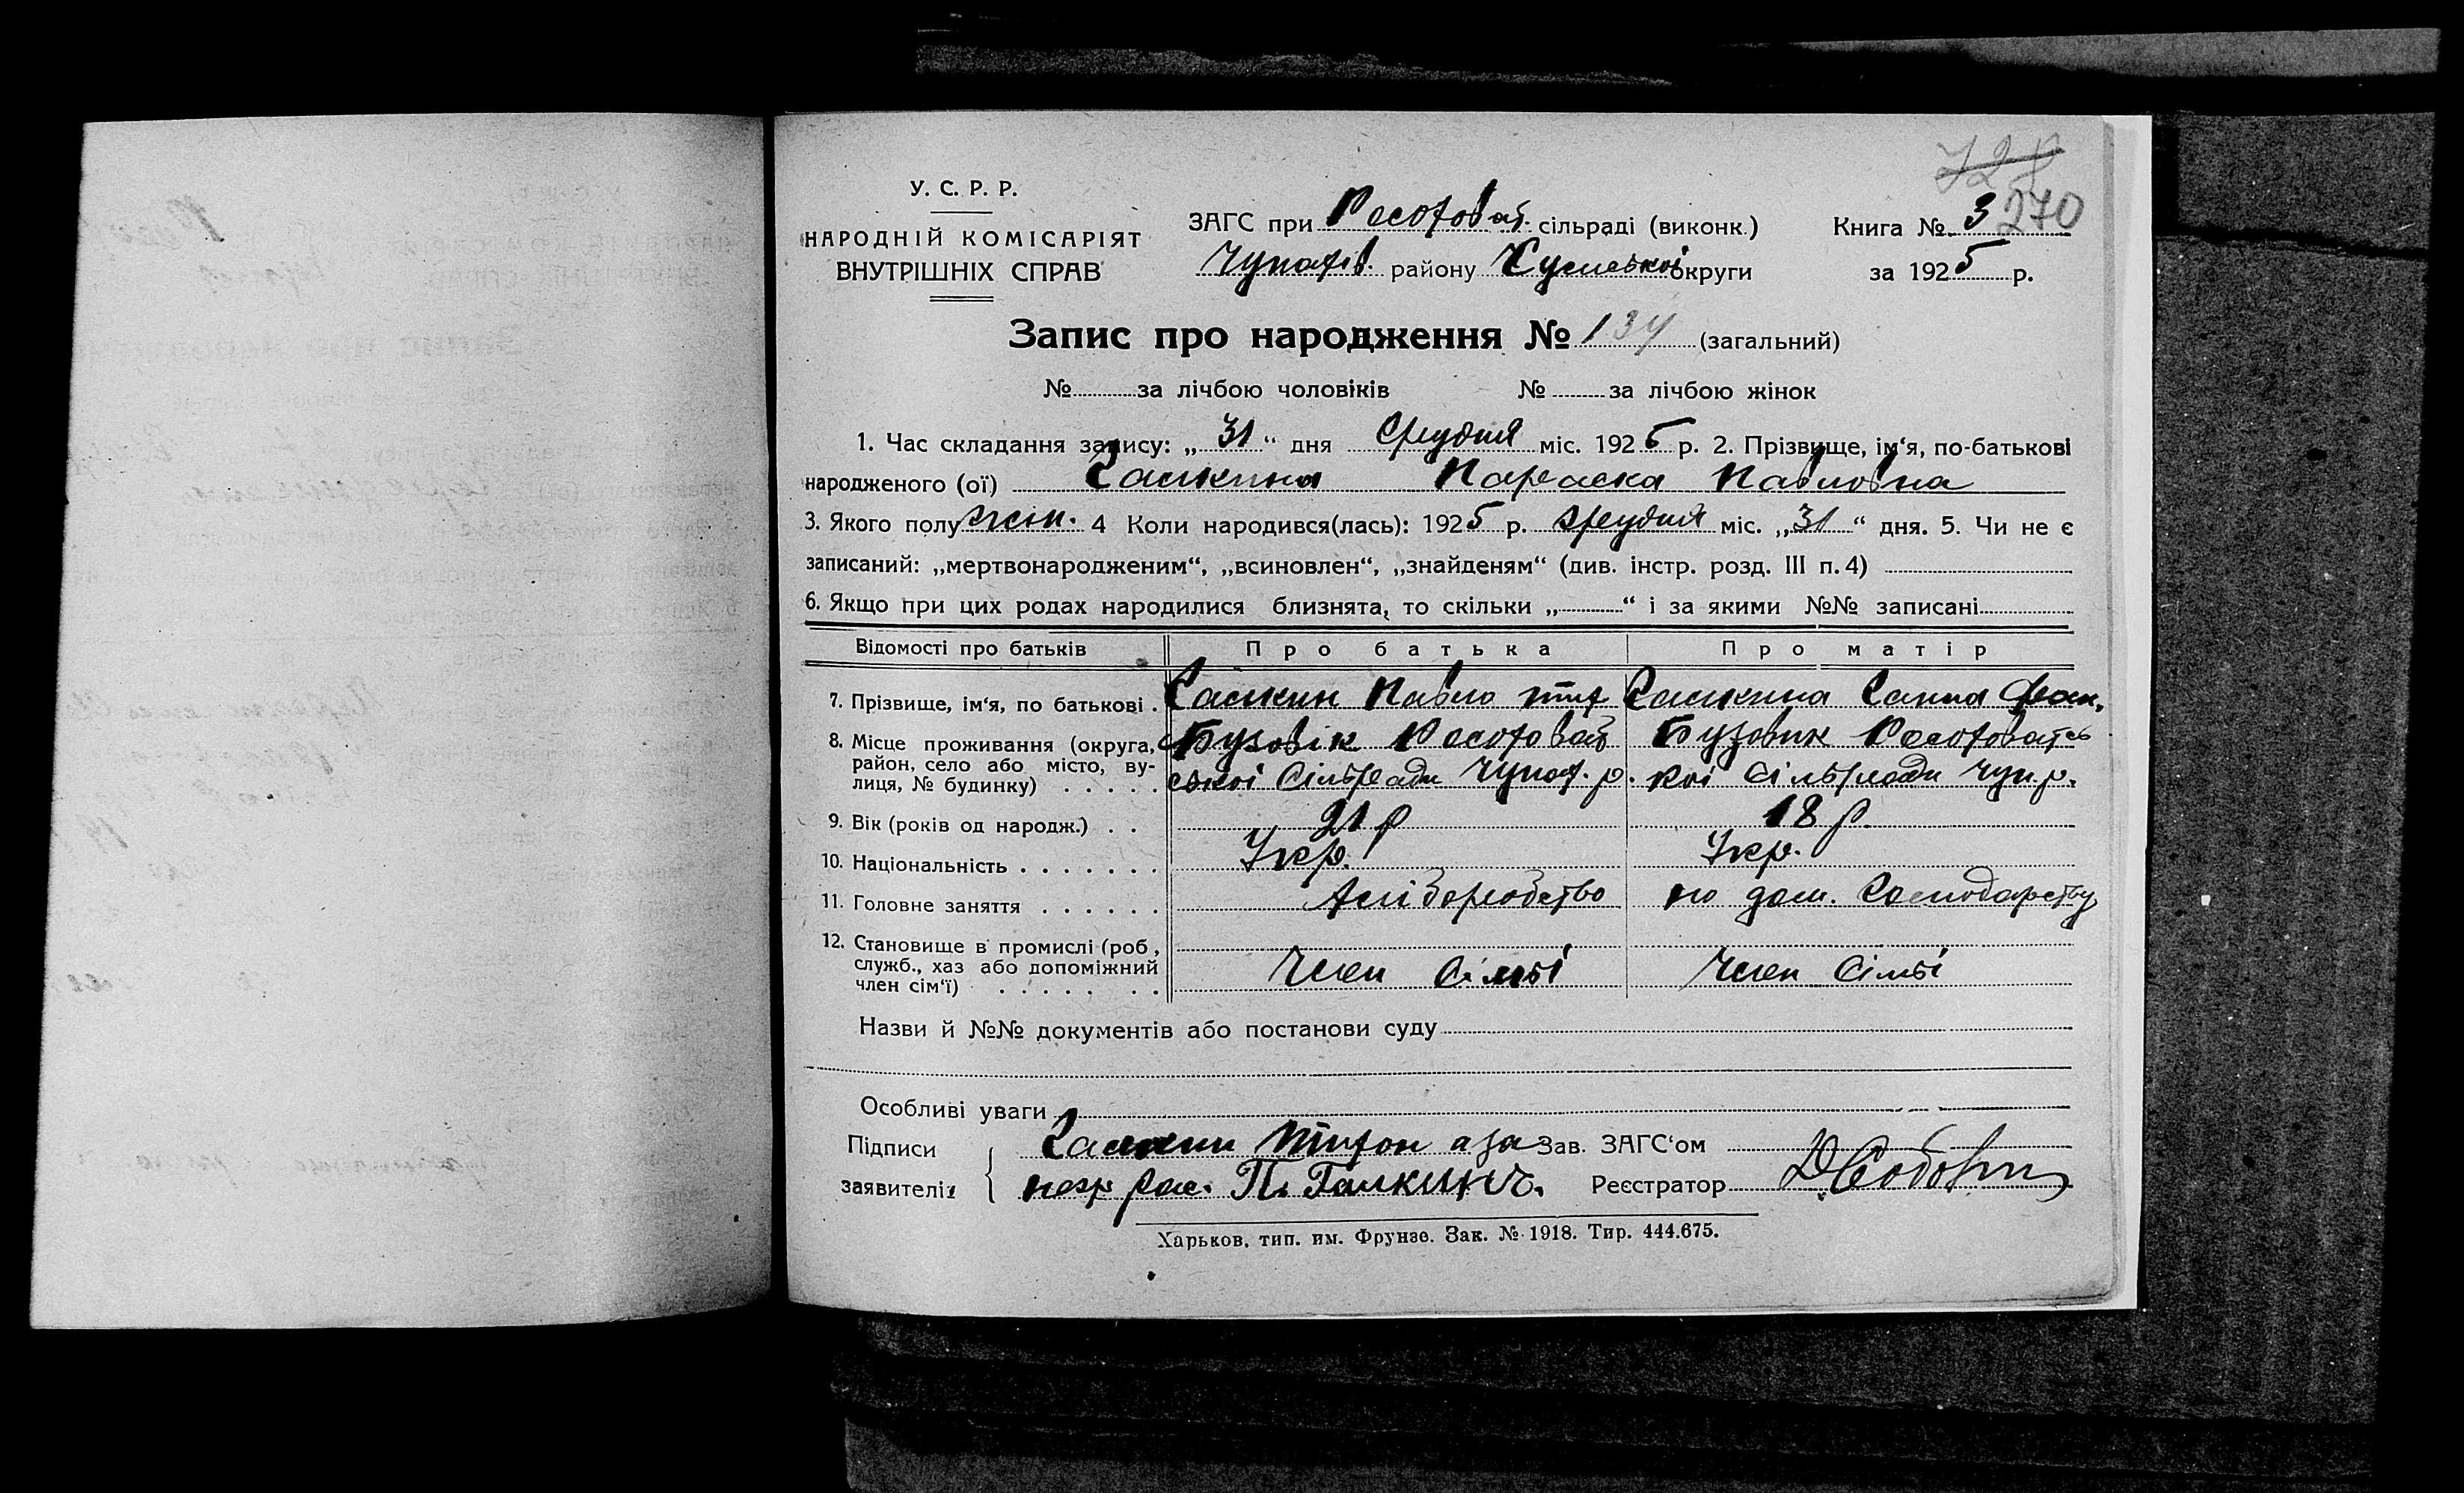 У. С. Р. Р.
НАРОДНІЙ КОМІСАРІЯТ
ВНУТРІШНІХ СПРАВ
270
ЗАГС при Рясофоват. сільраді (виконк.) Книга № 3
Чупахів. району Сумської округи за 1925 р.
Запис про народження № 134 (загальний)
№ за лічбою чоловіків № за лічбою жінок
1. Час складання запису: „31“ дня Грудня міс. 1925 р. 2. Прізвище, ім‘я, по-батькові
народженого (ої) Галкина Параска Павловна
3. Якого полу жін. 4 Коли народився(лась): 1925 р. Грудня міс. „31“ дня. 5. Чи не є
записаний: „мертвонародженим“, „всиновлен“, „знайденям“ (див. інстр. розд. III п. 4)
6. Якщо при цих родах народилися близнята, то скільки „ “ і за якими №№ записані
Відомості про батьків Про батька Про матір
7. Прізвище, ім‘я, по батькові . Галкин Павло Галкина Ганна
8. Місце проживання (округа, Бузовік Бузовик
район, село або місто, ву-
лиця, № будинку) . . . . . ської Сільради Чупах. р. кої Сільради Чуп. р.
9. Вік (років од народж.) . . 21 р 18 р.
10. Національність . . . . . . . Укр. Укр.
11. Головне заняття . . . . . . Хліборобство по дом. Господарству
12. Становище в промислі (роб,
служб., хаз або допоміжний Член Сімьі Член Сімьі
член сім‘ї) . . . . . . . .
Назви й №№ документів або постанови суду
Особливі уваги
Підписи Галкин а за Зав. ЗАГС‘ом
заявителів П. Галкинъ. Реєстратор
Харьков, тип. им. Фрунзе. Зак. № 1918. Тир. 444.675.